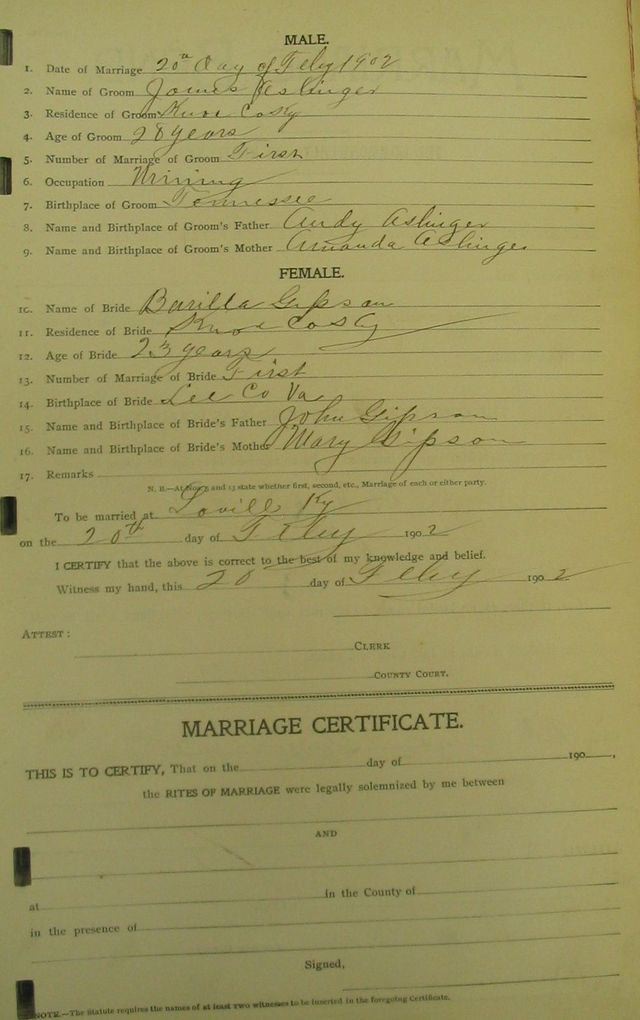 MALE.
1. Date of Marriage 20th Day of Feby 1902
2. Name of Groom James Aslinger
3. Residence of Groom Knox Co Ky
4. Age of Groom 28 years
5. Number of Marriage of Groom First
6. Occupation Mining
7. Birthplace of Groom Tennessee
8. Name and Birthplace of Groom's Father Andy Aslinger
9. Name and Birthplace of Groom's Mother Amanda Aslinger
FEMALE.
10. Name of Bride Barilla Gipson
11. Residence of Bride Knox Co Ky
12. Age of Bride 23 years
13. Number of Marriage of Bride First
14. Birthplace of Bride Lee Co Va
15. Name and Birthplace of Bride's Father John Gipson
16. Name and Birthplace of Bride's Mother Mary Gipson
17. Remarks
N. B.—At Nos. 5 and 13 state whether first, second, etc., Marriage of each or either party.
To be married at Ky
on the 20th day of Feby 1902
I CERTIFY that the above is correct to the best of my knowledge and belief.
Witness my hand, this 20 day of Feby 1902
ATTEST:
CLERK
COUNTY COURT.
MARRIAGE CERTIFICATE.
THIS IS TO CERTIFY, That on the day of 190 ,
the RITES OF MARRIAGE were legally solemnized by me between
AND
at in the County of
in the presence of
Signed,
NOTE.—The Statute requires the names of at least two witnesses to be inserted in the foregoing Certificate.